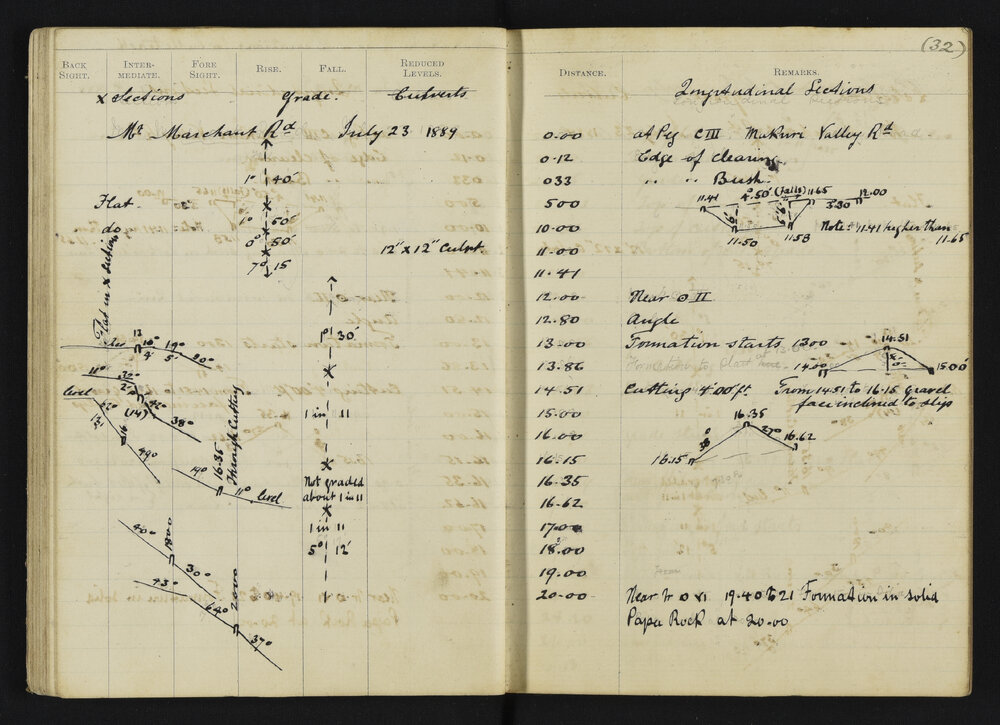 (32)
BACK SIGHT. INTER-MEDIATE. FORE SIGHT. RISE. FALL. REDUCED LEVELS.
x Sections Grade. Culverts
Mt Marchant Rd July 23 1889
1° 40'
Flat
1° 50'
do
0° 50' 12" x 12" Culvt
7° 15
Flat in x section
1° 30'
13 10° 19°
4' 5' 20°
11°
level
(14)
38°
1 in 11
16
49°
Through Cutting
16.35
19° 11° level
Not graded
about 1 in 11
1 in 11
40° 18.00
5° 12'
30°
43°
64° 20.00
37°
DISTANCE. REMARKS.
Longitudinal Sections
0.00 at Peg CIII Makuri Valley Rd
0.12 Edge of clearing
033 " " Bush
500 11.41 4.50' (Falls) 11.65 3.30 12.00
10.00 11.50 11.58 Note: 11.41 higher than 11.65
11.00
11.41
12.00 Near ⊙ II
12.80 Angle
13.00 Formation starts 1300
13.86 14.00 14.51 15.00
14.51 Cutting 4'00 ft. From 14.51 to 16.15 gravel
face inclined to slip
15.00
16.00 16.35 27° 16.62
16.15 16.15
16.35
16.62
17.00
18.00
19.00
20.00 Near ⊙ VI 19.40 to 21 Formation in solid
Papa Rock at 20.00